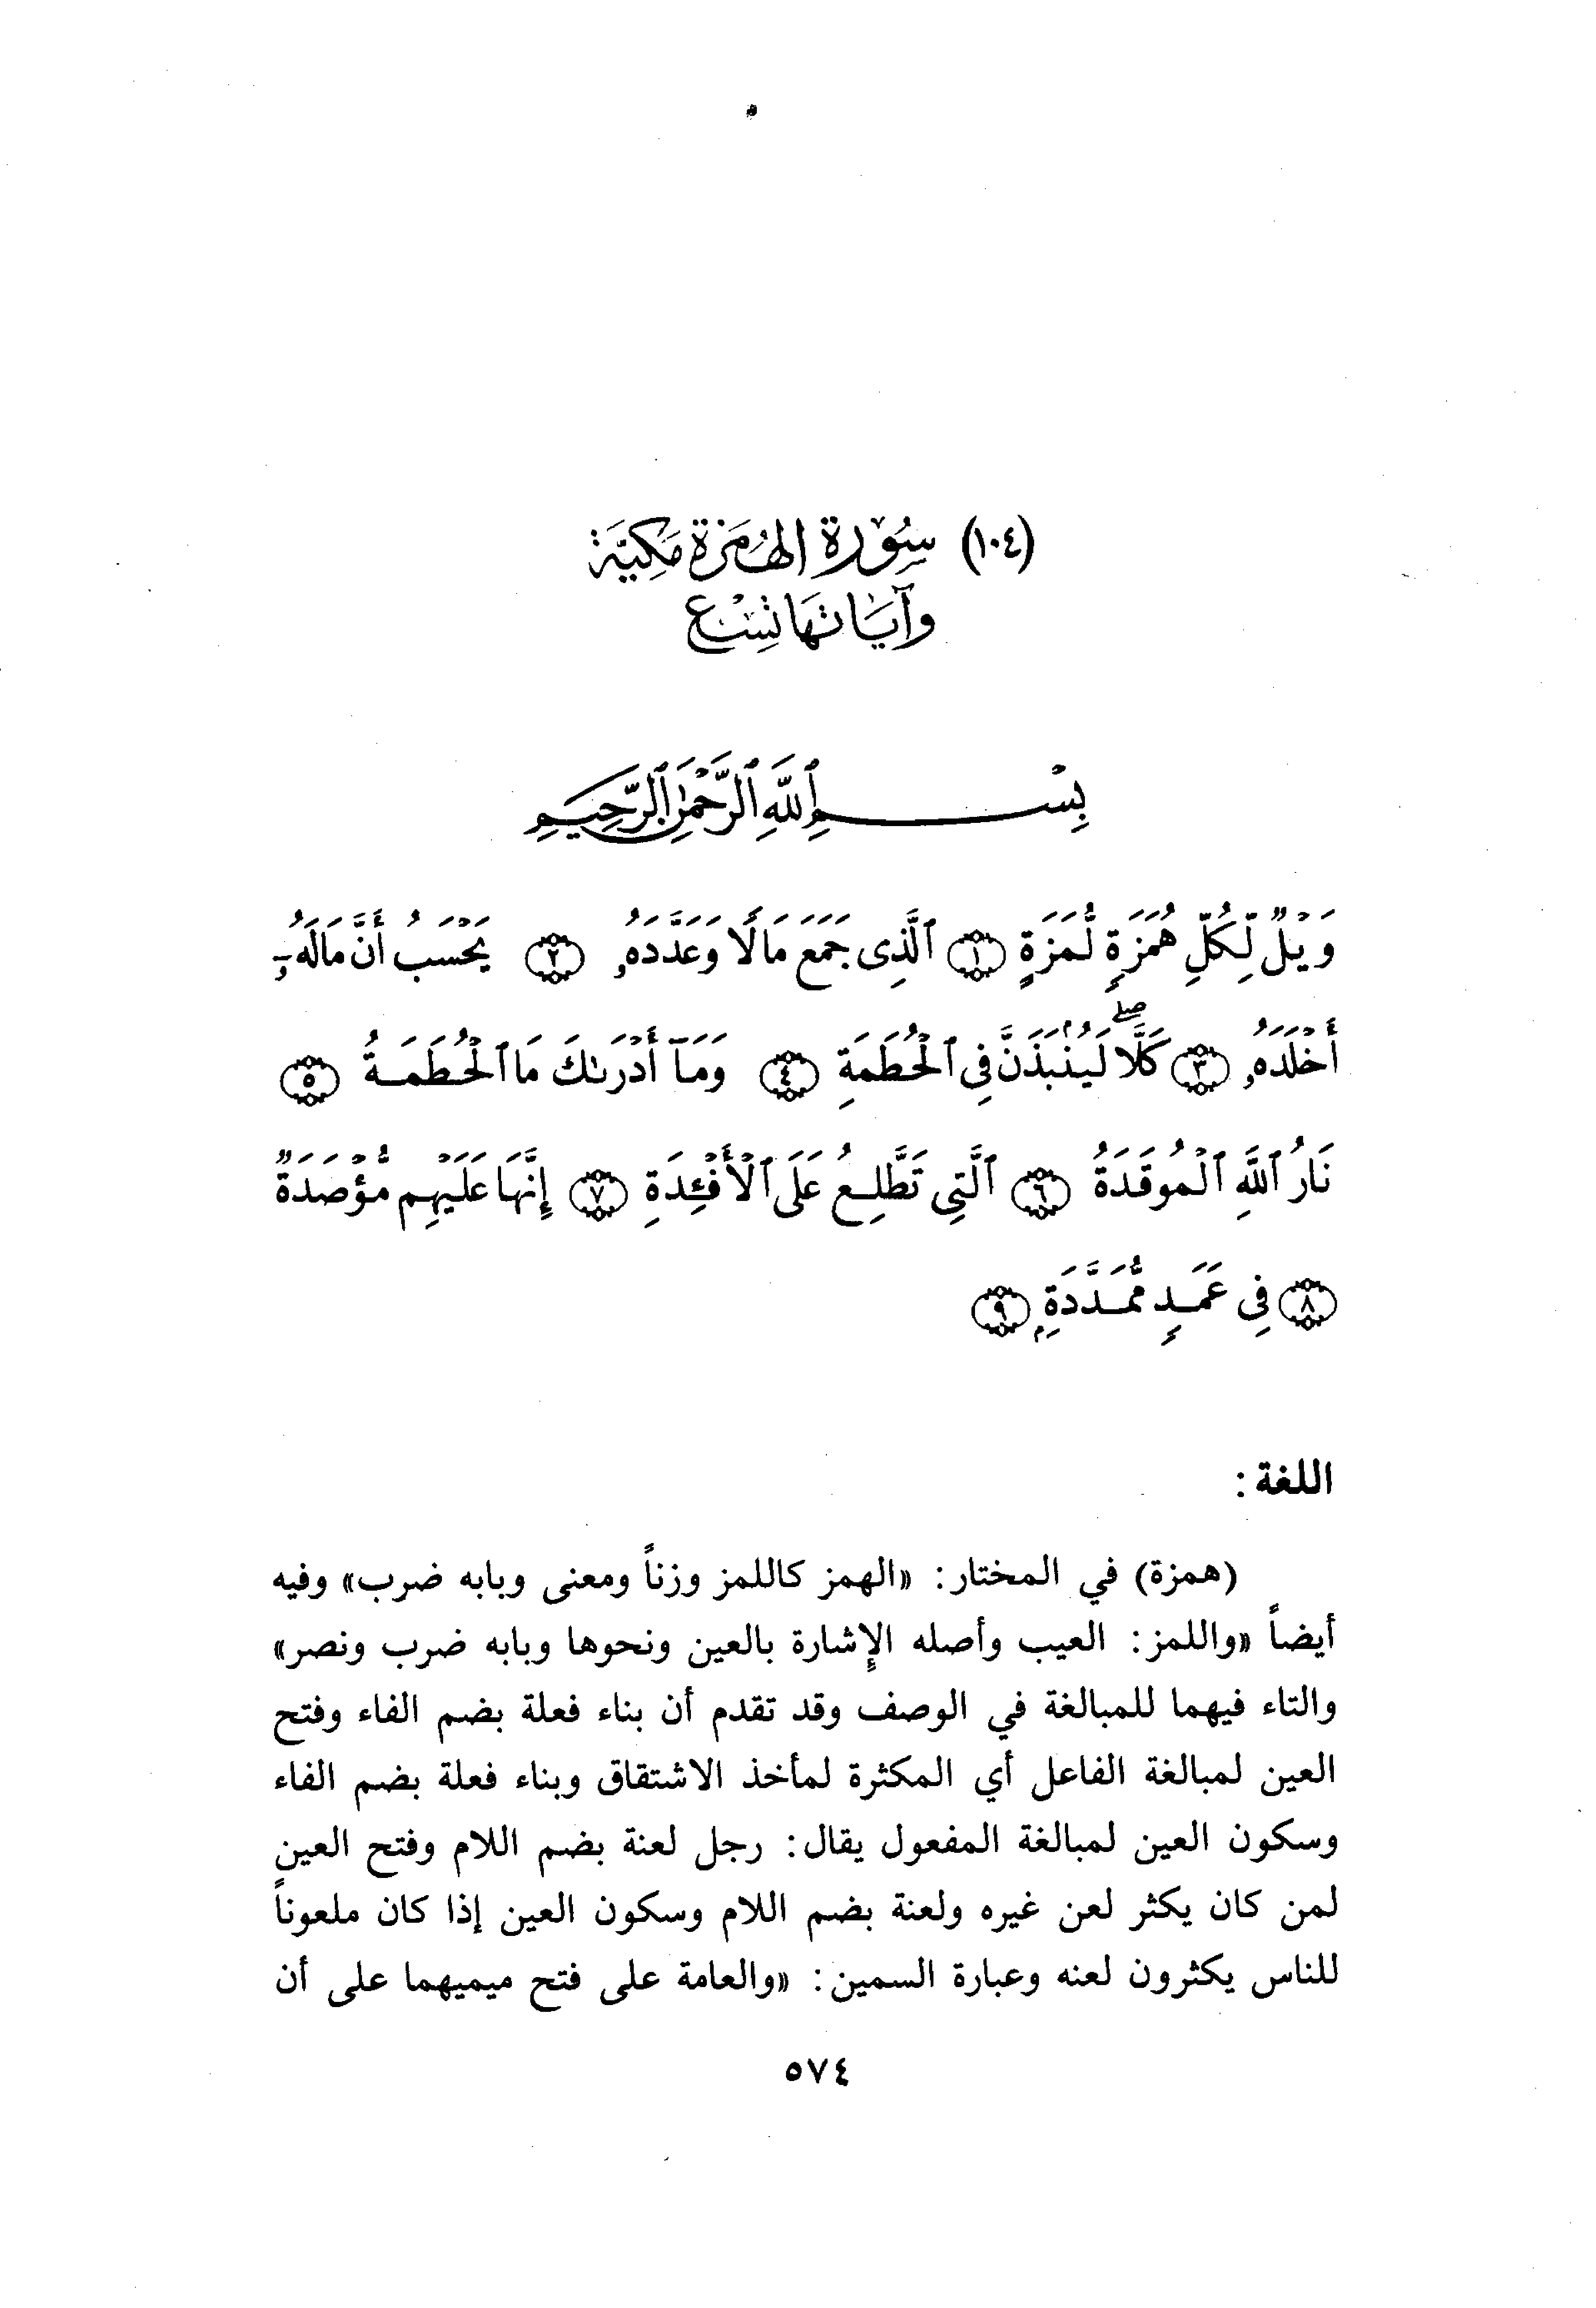 (١٠٤) سُورة الهُمَزة مَكيَّة
وآيَاتهَا تِسْع
بِسْمِ ٱللَّهِ ٱلرَّحْمَٰنِ ٱلرَّحِيمِ
وَيْلٌ لِّكُلِّ هُمَزَةٍ لُّمَزَةٍ ١ ٱلَّذِى جَمَعَ مَالًا وَعَدَّدَهُۥ ٢ يَحْسَبُ أَنَّ مَالَهُۥٓ
أَخْلَدَهُۥ ٣ كَلَّاۖ لَيُنۢبَذَنَّ فِى ٱلْحُطَمَةِ ٤ وَمَآ أَدْرَىٰكَ مَا ٱلْحُطَمَةُ ٥
نَارُ ٱللَّهِ ٱلْمُوقَدَةُ ٦ ٱلَّتِى تَطَّلِعُ عَلَى ٱلْأَفْـِٔدَةِ ٧ إِنَّهَا عَلَيْهِم مُّؤْصَدَةٌ
٨ فِى عَمَدٍ مُّمَدَّدَةٍۭ ٩
اللغة :
(همزة) في المختار: «الهمز كاللمز وزناً ومعنى وبابه ضرب» وفيه
أيضاً «واللمز: العيب وأصله الإشارة بالعين ونحوها وبابه ضرب ونصر»
والتاء فيهما للمبالغة في الوصف وقد تقدم أن بناء فعلة بضم الفاء وفتح
العين لمبالغة الفاعل أي المكثرة لمأخذ الاشتقاق وبناء فعلة بضم الفاء
وسكون العين لمبالغة المفعول يقال: رجل لعنة بضم اللام وفتح العين
لمن كان يكثر لعن غيره ولعنة بضم اللام وسكون العين إذا كان ملعوناً
للناس يكثرون لعنه وعبارة السمين: «والعامة على فتح ميميهما على أن
٥٧٤